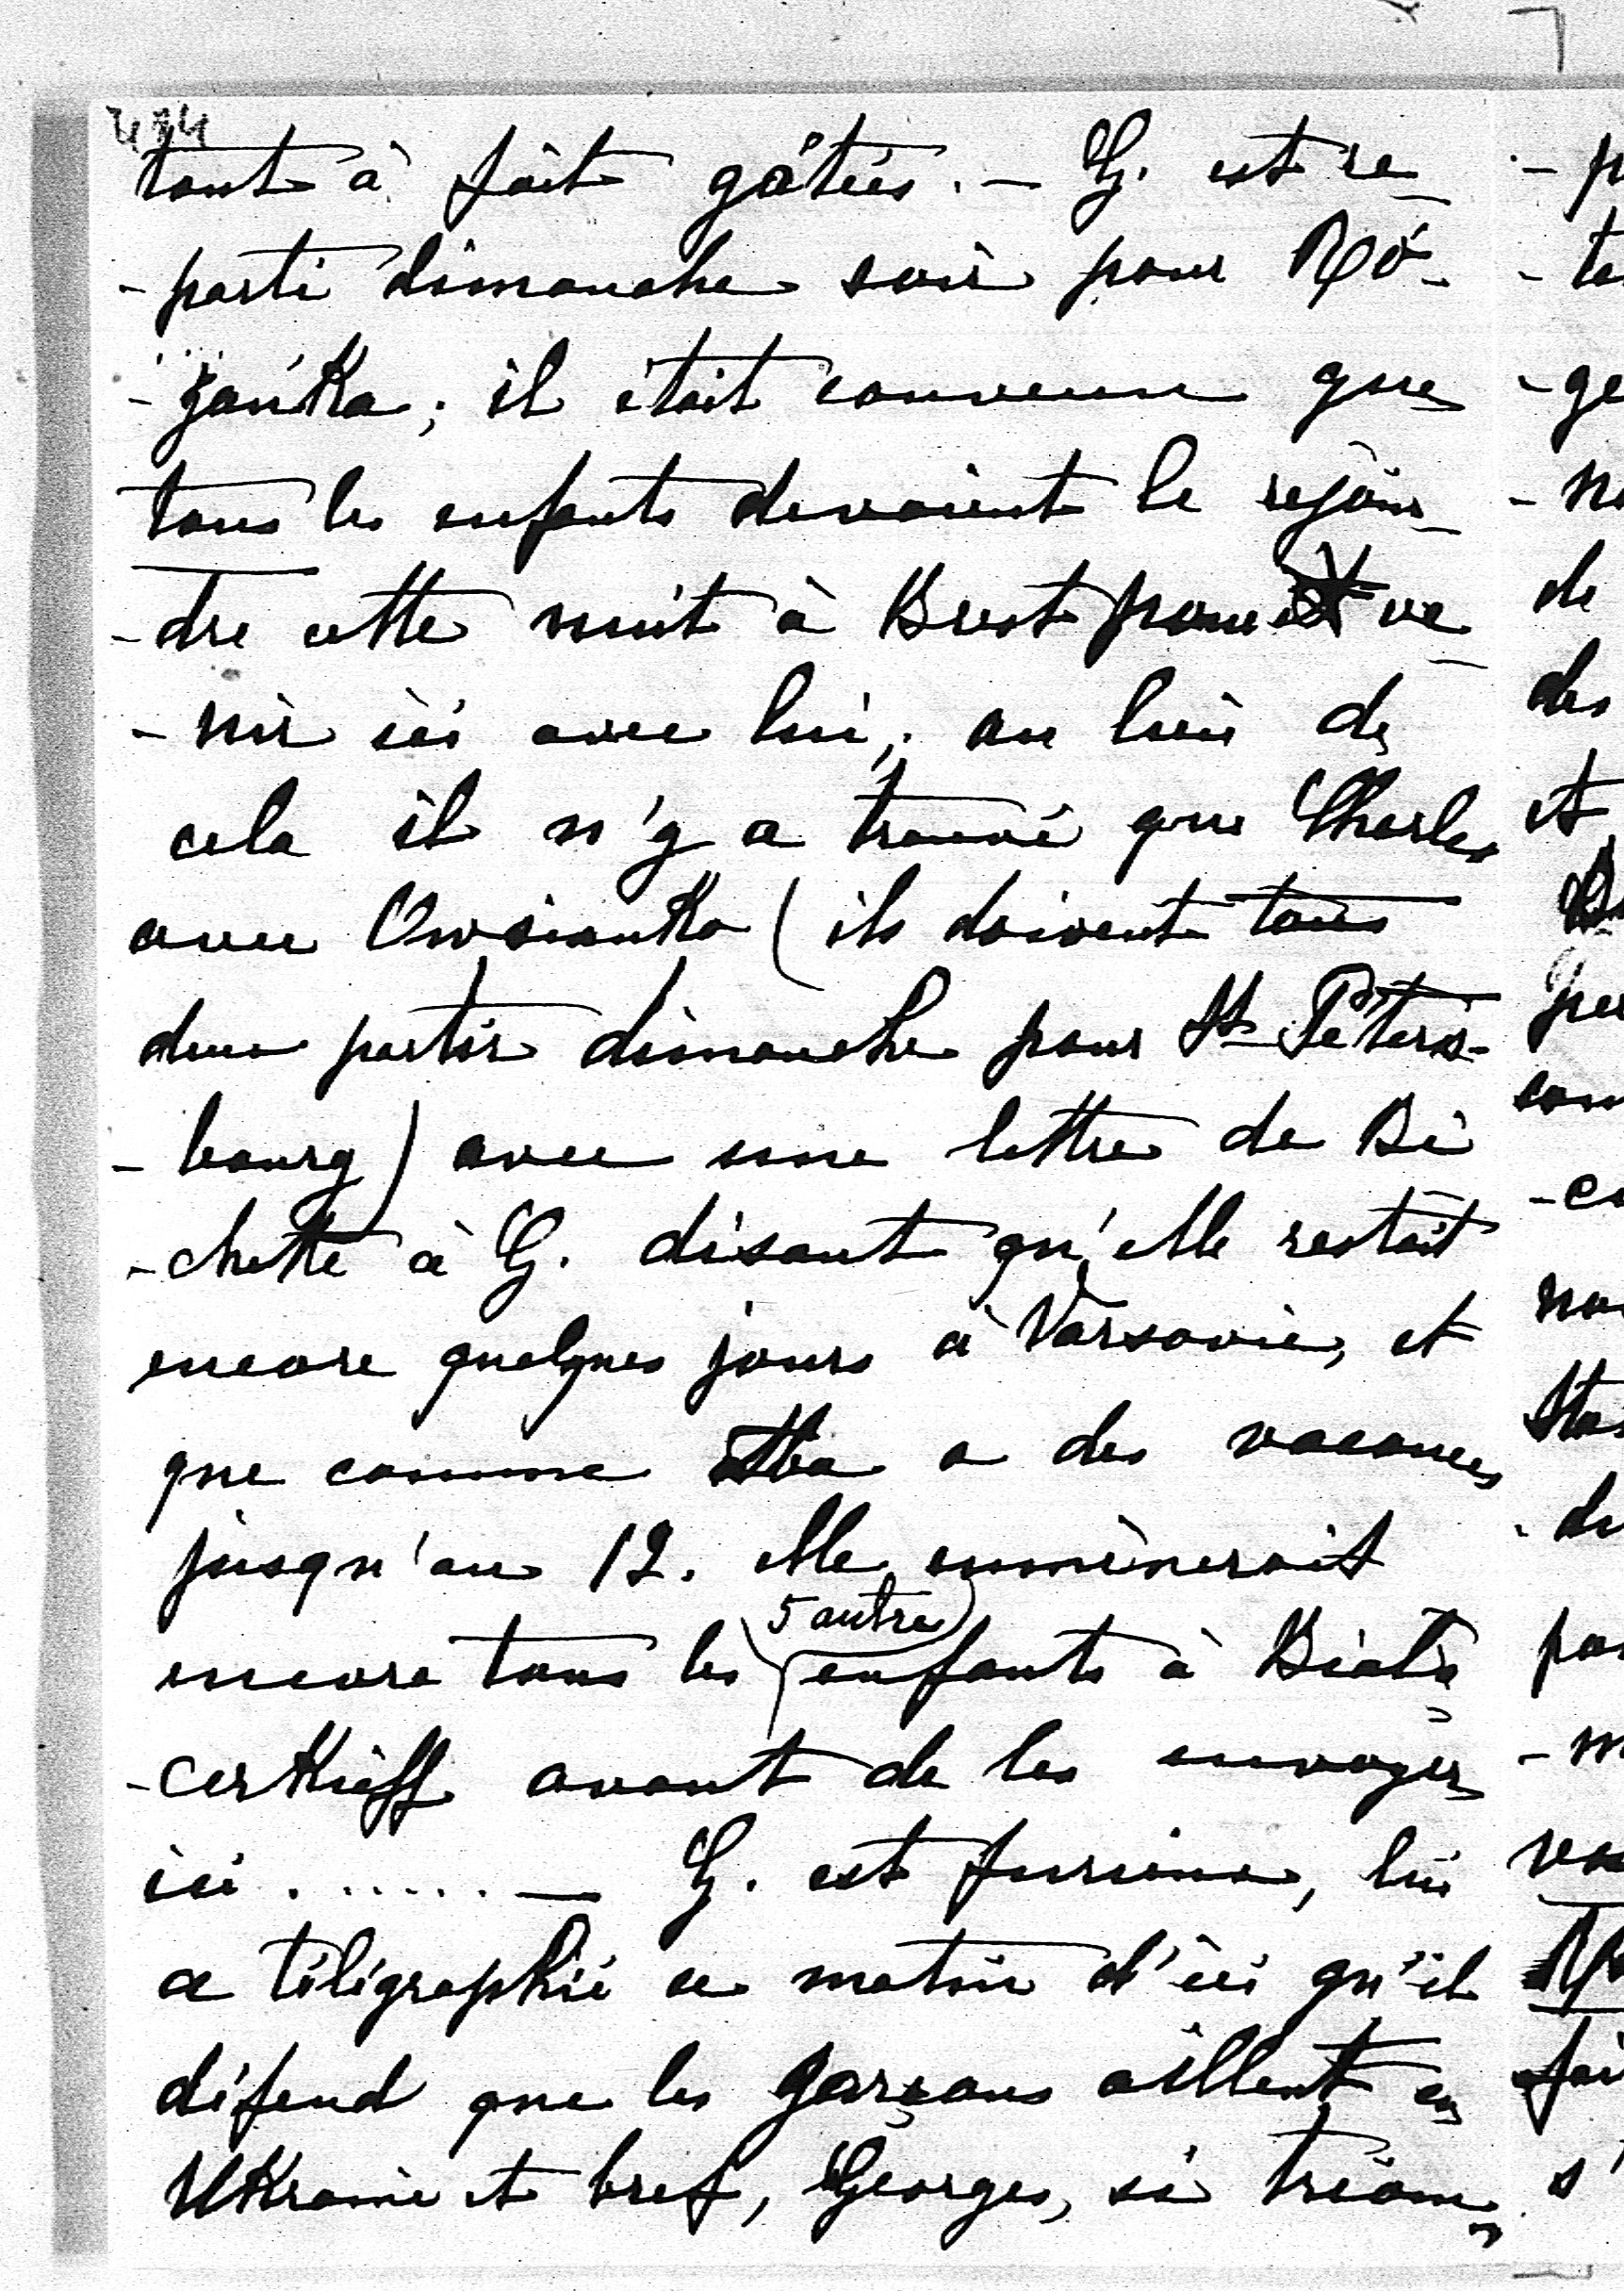 474
tout à fait gâtées. — G. est re-
-parti dimanche soir pour Ró-
-żanka; il était convenu que
tous les enfants devaient le rejoin-
-dre cette nuit à Brest pour ve-
-nir ici avec lui; au lieu de
cela il n'y a trouvé que Charles
avec Owsianko (ils doivent tous
deux partir dimanche pour St Péters-
-bourg) avec une lettre de Bi
-chette à G. disant qu'elle restait
encore quelques jours à Varsovie, et
que comme a des vacances
jusqu'au 12. elle emmènerait
encore tous les (5 autres) enfants à Biała
-cerkieff avant de les envoyer
ici ...... — G. est furieux, lui
a télégraphié ce matin d'ici qu'il
défend que les garçons aillent en
Ukraine et bref, Georges, si triom-